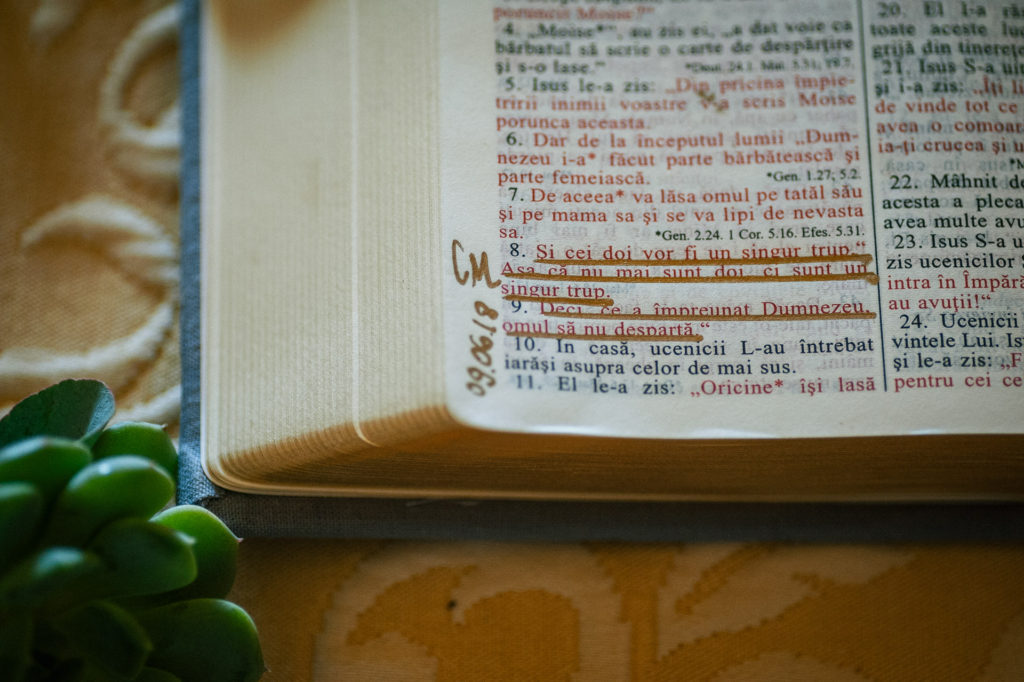 poruncit Moise?"
4. „Moise*", au zis ei, „a dat voie ca
bărbatul să scrie o carte de despărţire
şi s-o lase."
*Deut. 24.1. Mat. 5.31; 19.7.
5. Isus le-a zis: „Din pricina împie-
tririi inimii voastre v-a scris Moise
porunca aceasta.
6. Dar de la începutul lumii „Dum-
nezeu i-a* făcut parte bărbătească şi
parte femeiască.
*Gen. 1.27; 5.2.
7. De aceea* va lăsa omul pe tatăl său
şi pe mama sa şi se va lipi de nevasta
sa.
*Gen. 2.24. 1 Cor. 5.16. Efes. 5.31.
8. Şi cei doi vor fi un singur trup."
Aşa că nu mai sunt doi, ci sunt un
singur trup.
9. Deci, ce a împreunat Dumnezeu,
omul să nu despartă."
10. În casă, ucenicii L-au întrebat
iarăşi asupra celor de mai sus.
11. El le-a zis: „Oricine* îşi lasă
CM
09.06.18
20. El I-a
toate aceste
grijă din tinereţe
21. Isus S-a
şi i-a zis: „Îţi
de vinde tot ce
avea o
ia-ţi crucea şi
22. Mâhnit
acesta a
avea multe
23. Isus S-a
zis ucenicilor
intra în
au avuţii!"
24. Ucenicii
vintele Lui.
şi le-a zis:
pentru cei ce